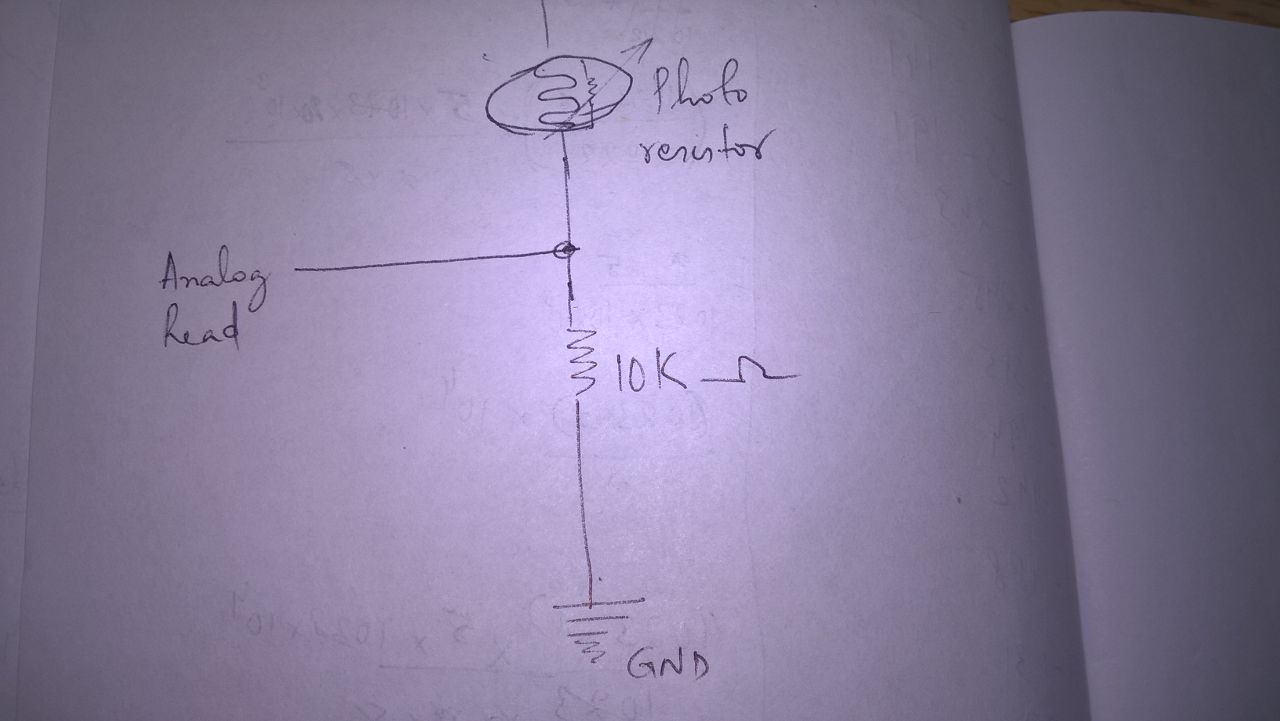 Photo
resistor
Analog
Read
10K Ω
GND